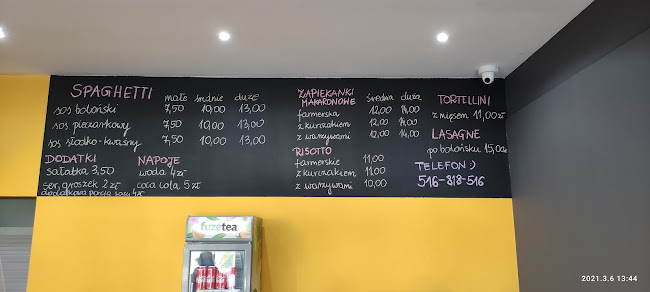 SPAGHETTI małe średnie duże
sos boloński 7,50 10,00 13,00
sos pieczarkowy 7,50 10,00 13,00
sos słodko-kwaśny 7,50 10,00 13,00
DODATKI
sałatka 3,50
ser, groszek 2 zł
dodatkowa porcja sosu 4zł
NAPOJE
woda 4zł
coca cola 5 zł
ZAPIEKANKI
MAKARONOWE średnia duża
farmerska 12,00 14,00
z kurczakiem 12,00 14,00
z warzywami 12,00 14,00
RISOTTO
farmerskie 11,00
z kurczakiem 11,00
z warzywami 10,00
TORTELLINI
z mięsem 11,00zł
LASAGNE
po bolońsku 15,00
TELEFON :)
516-818-516
fuzetea
2021.3.6 13:44